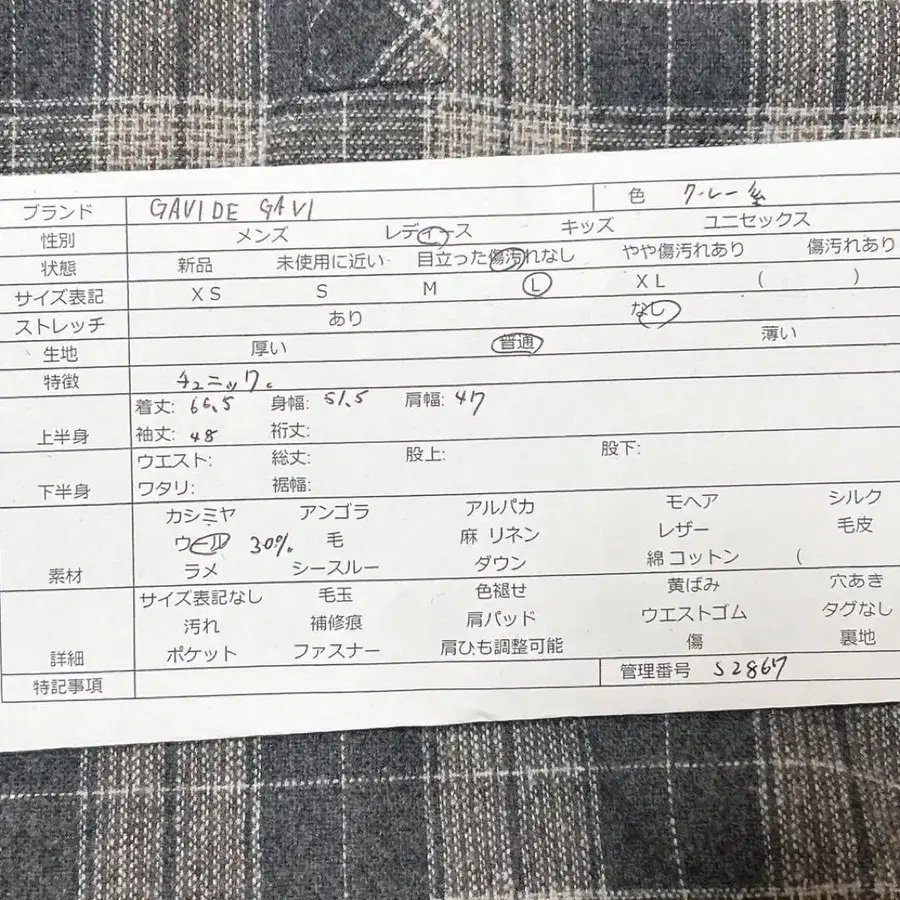 ブランド GAVIDE GAVI 色 グレー系
性別 メンズ レディース キッズ ユニセックス
状態 新品 未使用に近い 目立った傷汚れなし やや傷汚れあり 傷汚れあり
サイズ表記 XS S M L XL ( )
ストレッチ あり なし
生地 厚い 普通 薄い
特徴 チュニック。
上半身 着丈: 66.5 身幅: 51.5 肩幅: 47
袖丈: 48 裄丈:
下半身 ウエスト: 総丈: 股上: 股下:
ワタリ: 裾幅:
素材 カシミヤ アンゴラ アルパカ モヘア シルク
ウール 30% 毛 麻 リネン レザー 毛皮
ラメ シースルー ダウン 綿 コットン (
詳細 サイズ表記なし 毛玉 色褪せ 黄ばみ 穴あき
汚れ 補修痕 肩パッド ウエストゴム タグなし
ポケット ファスナー 肩ひも調整可能 傷 裏地
特記事項 管理番号 S2867